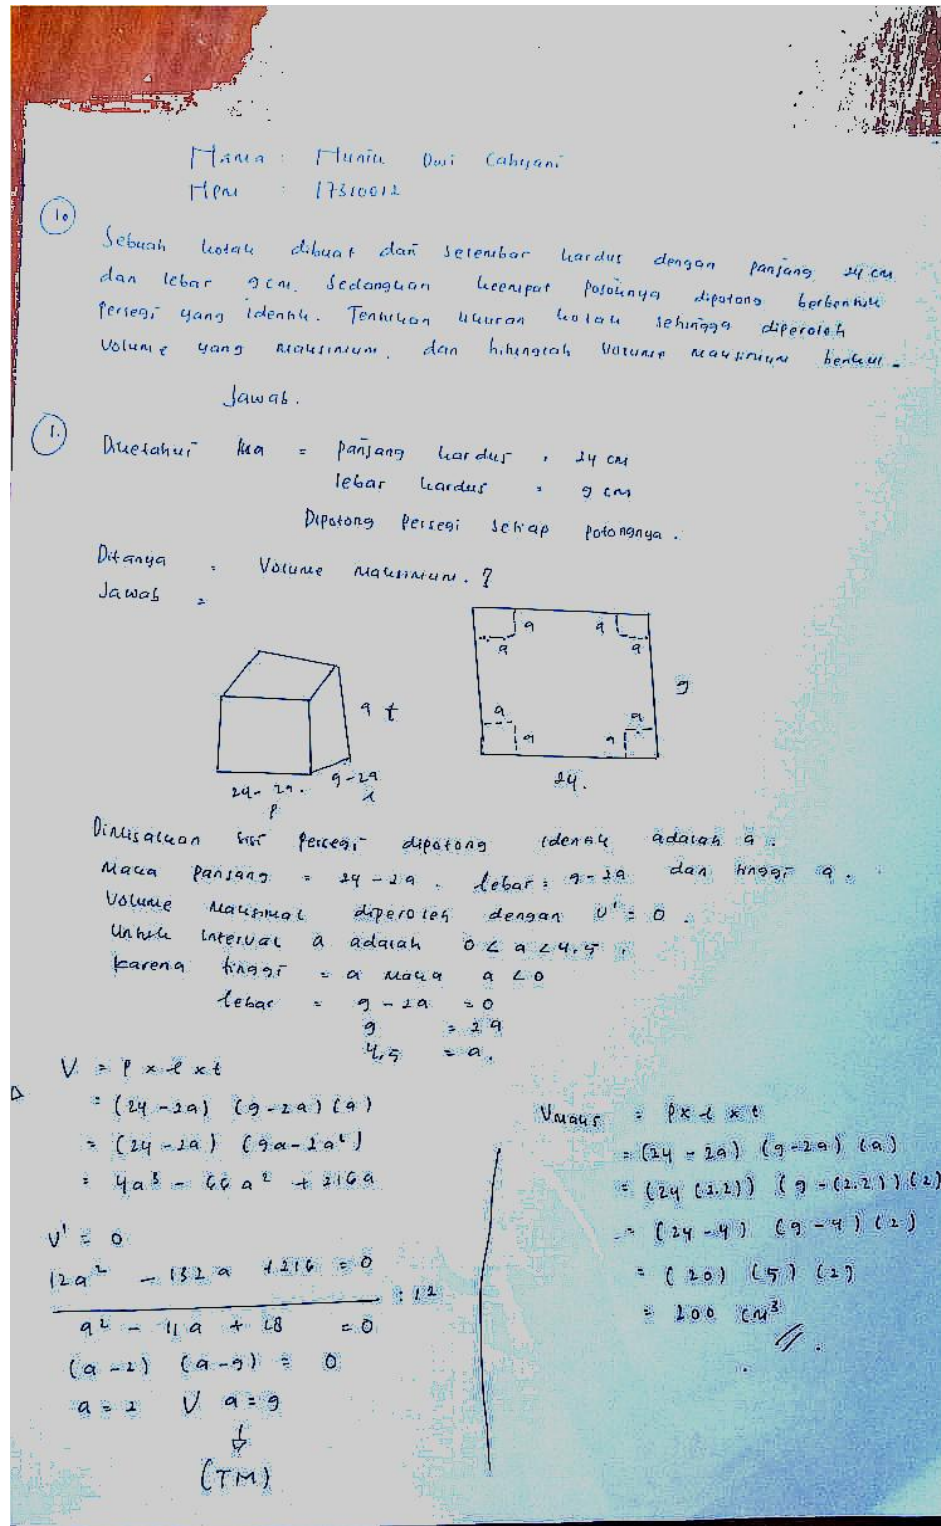 Nama : Munia Dwi Cahyani
NPM : 17310012
10
Sebuah kotak dibuat dari selembar kardus dengan panjang 24 cm
dan lebar 9 cm. Sedangkan keempat pojoknya dipotong berbentuk
persegi yang identik. Tentukan ukuran kotak sehingga diperoleh
volume yang maksimum, dan hitunglah volume maksimum berikut.
Jawab.
1.
Diketahui = panjang kardus = 24 cm
lebar kardus = 9 cm
Dipotong persegi setiap potongnya.
Ditanya : Volume maksimum. ?
Jawab =
a a
a a
a t
9
a a
a a
24-2a. 9-2a
p l
24.
Dimisalkan sisi persegi dipotong identik adalah a.
Maka panjang = 24-2a. lebar = 9-2a dan tinggi a.
Volume maksimal diperoleh dengan V' = 0.
Untuk interval a adalah 0 < a < 4,5.
karena tinggi = a maka a < 0
lebar = 9 - 2a = 0
9 = 2a
4,5 = a.
V = p x l x t
= (24-2a) (9-2a) (a)
= (24-2a) (9a-2a²)
= 4a³ - 66a² + 216a
V' = 0
12a² - 132a + 216 = 0
: 12
a² - 11a + 18 = 0
(a-2) (a-9) = 0
a = 2 V a = 9
(TM)
Vmaks = p x l x t
= (24-2a) (9-2a) (a)
= (24 (2.2)) (9-(2.2)) (2)
= (24-4) (9-4) (2)
= (20) (5) (2)
= 200 cm³